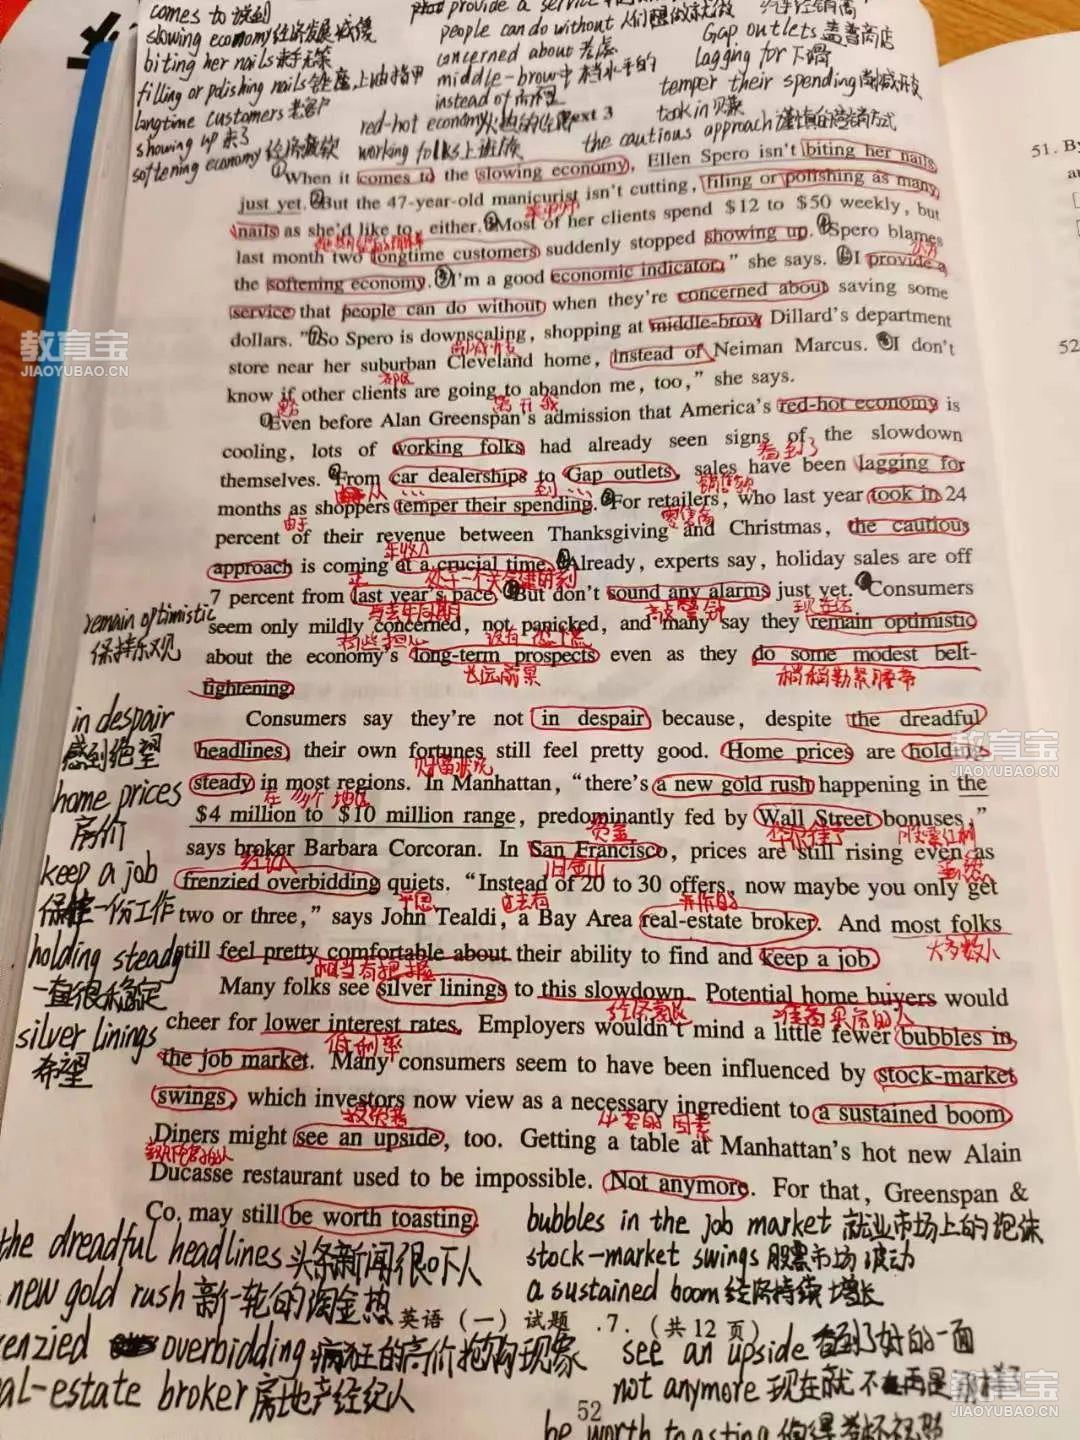 comes to 谈到
slowing economy 经济发展减缓
biting her nails 束手无策
filling or polishing nails 锉座,上油指甲
langtime customers 老客户
showing up 来了
softening economy 经济疲软
provide a service
people can do without
concerned about 考虑
middle-brow 中档水平的
instead of 而不是
red-hot economy
working folks 上班族
Gap outlets 盖普商店
lagging for 下滑
temper their spending
took in 赚
the cautious approach
ext 3
When it comes to the slowing economy, Ellen Spero isn't biting her nails
just yet. But the 47-year-old manicurist isn't cutting, filing or polishing as many
nails as she'd like to, either. Most of her clients spend $12 to $50 weekly, but
last month two longtime customers suddenly stopped showing up. Spero blames
the softening economy. "I'm a good economic indicator," she says. "I provide a
service that people can do without when they're concerned about saving some
dollars." So Spero is downscaling, shopping at middle-brow Dillard's department
store near her suburban Cleveland home, instead of Neiman Marcus. "I don't
know if other clients are going to abandon me, too," she says.
Even before Alan Greenspan's admission that America's red-hot economy is
cooling, lots of working folks had already seen signs of the slowdown
themselves. From car dealerships to Gap outlets, sales have been lagging for
months as shoppers temper their spending. For retailers, who last year took in 24
percent of their revenue between Thanksgiving and Christmas, the cautious
approach is coming at a crucial time. Already, experts say, holiday sales are off
7 percent from last year's pace. But don't sound any alarms just yet. Consumers
seem only mildly concerned, not panicked, and many say they remain optimistic
about the economy's long-term prospects even as they do some modest belt-
tightening.
remain optimistic
保持乐观
Consumers say they're not in despair because, despite the dreadful
headlines, their own fortunes still feel pretty good. Home prices are holding
steady in most regions. In Manhattan, "there's a new gold rush happening in the
$4 million to $10 million range, predominantly fed by Wall Street bonuses,"
says broker Barbara Corcoran. In San Francisco, prices are still rising even as
frenzied overbidding quiets. "Instead of 20 to 30 offers, now maybe you only get
two or three," says John Tealdi, a Bay Area real-estate broker. And most folks
still feel pretty comfortable about their ability to find and keep a job.
in despair
感到绝望
home prices
房价
keep a job
保住一份工作
holding steady
一直很稳定
silver linings
希望
Many folks see silver linings to this slowdown. Potential home buyers would
cheer for lower interest rates. Employers wouldn't mind a little fewer bubbles in
the job market. Many consumers seem to have been influenced by stock-market
swings, which investors now view as a necessary ingredient to a sustained boom.
Diners might see an upside, too. Getting a table at Manhattan's hot new Alain
Ducasse restaurant used to be impossible. Not anymore. For that, Greenspan &
Co. may still be worth toasting.
the dreadful headlines 头条新闻很吓人
new gold rush 新一轮的淘金热
enzied overbidding 疯狂的高价抢购现象
al-estate broker 房地产经纪人
bubbles in the job market 就业市场上的泡沫
stock-market swings 股票市场波动
a sustained boom 经济持续增长
see an upside 看到了好的一面
not anymore 现在就不再是
be worth toasting
英语(一)试题 .7. (共12页)
52
51. B
52
教育宝
JIAOYUBAO.CN
教育宝
JIAOYUBAO.CN
教育宝
JIAOYUBAO.CN